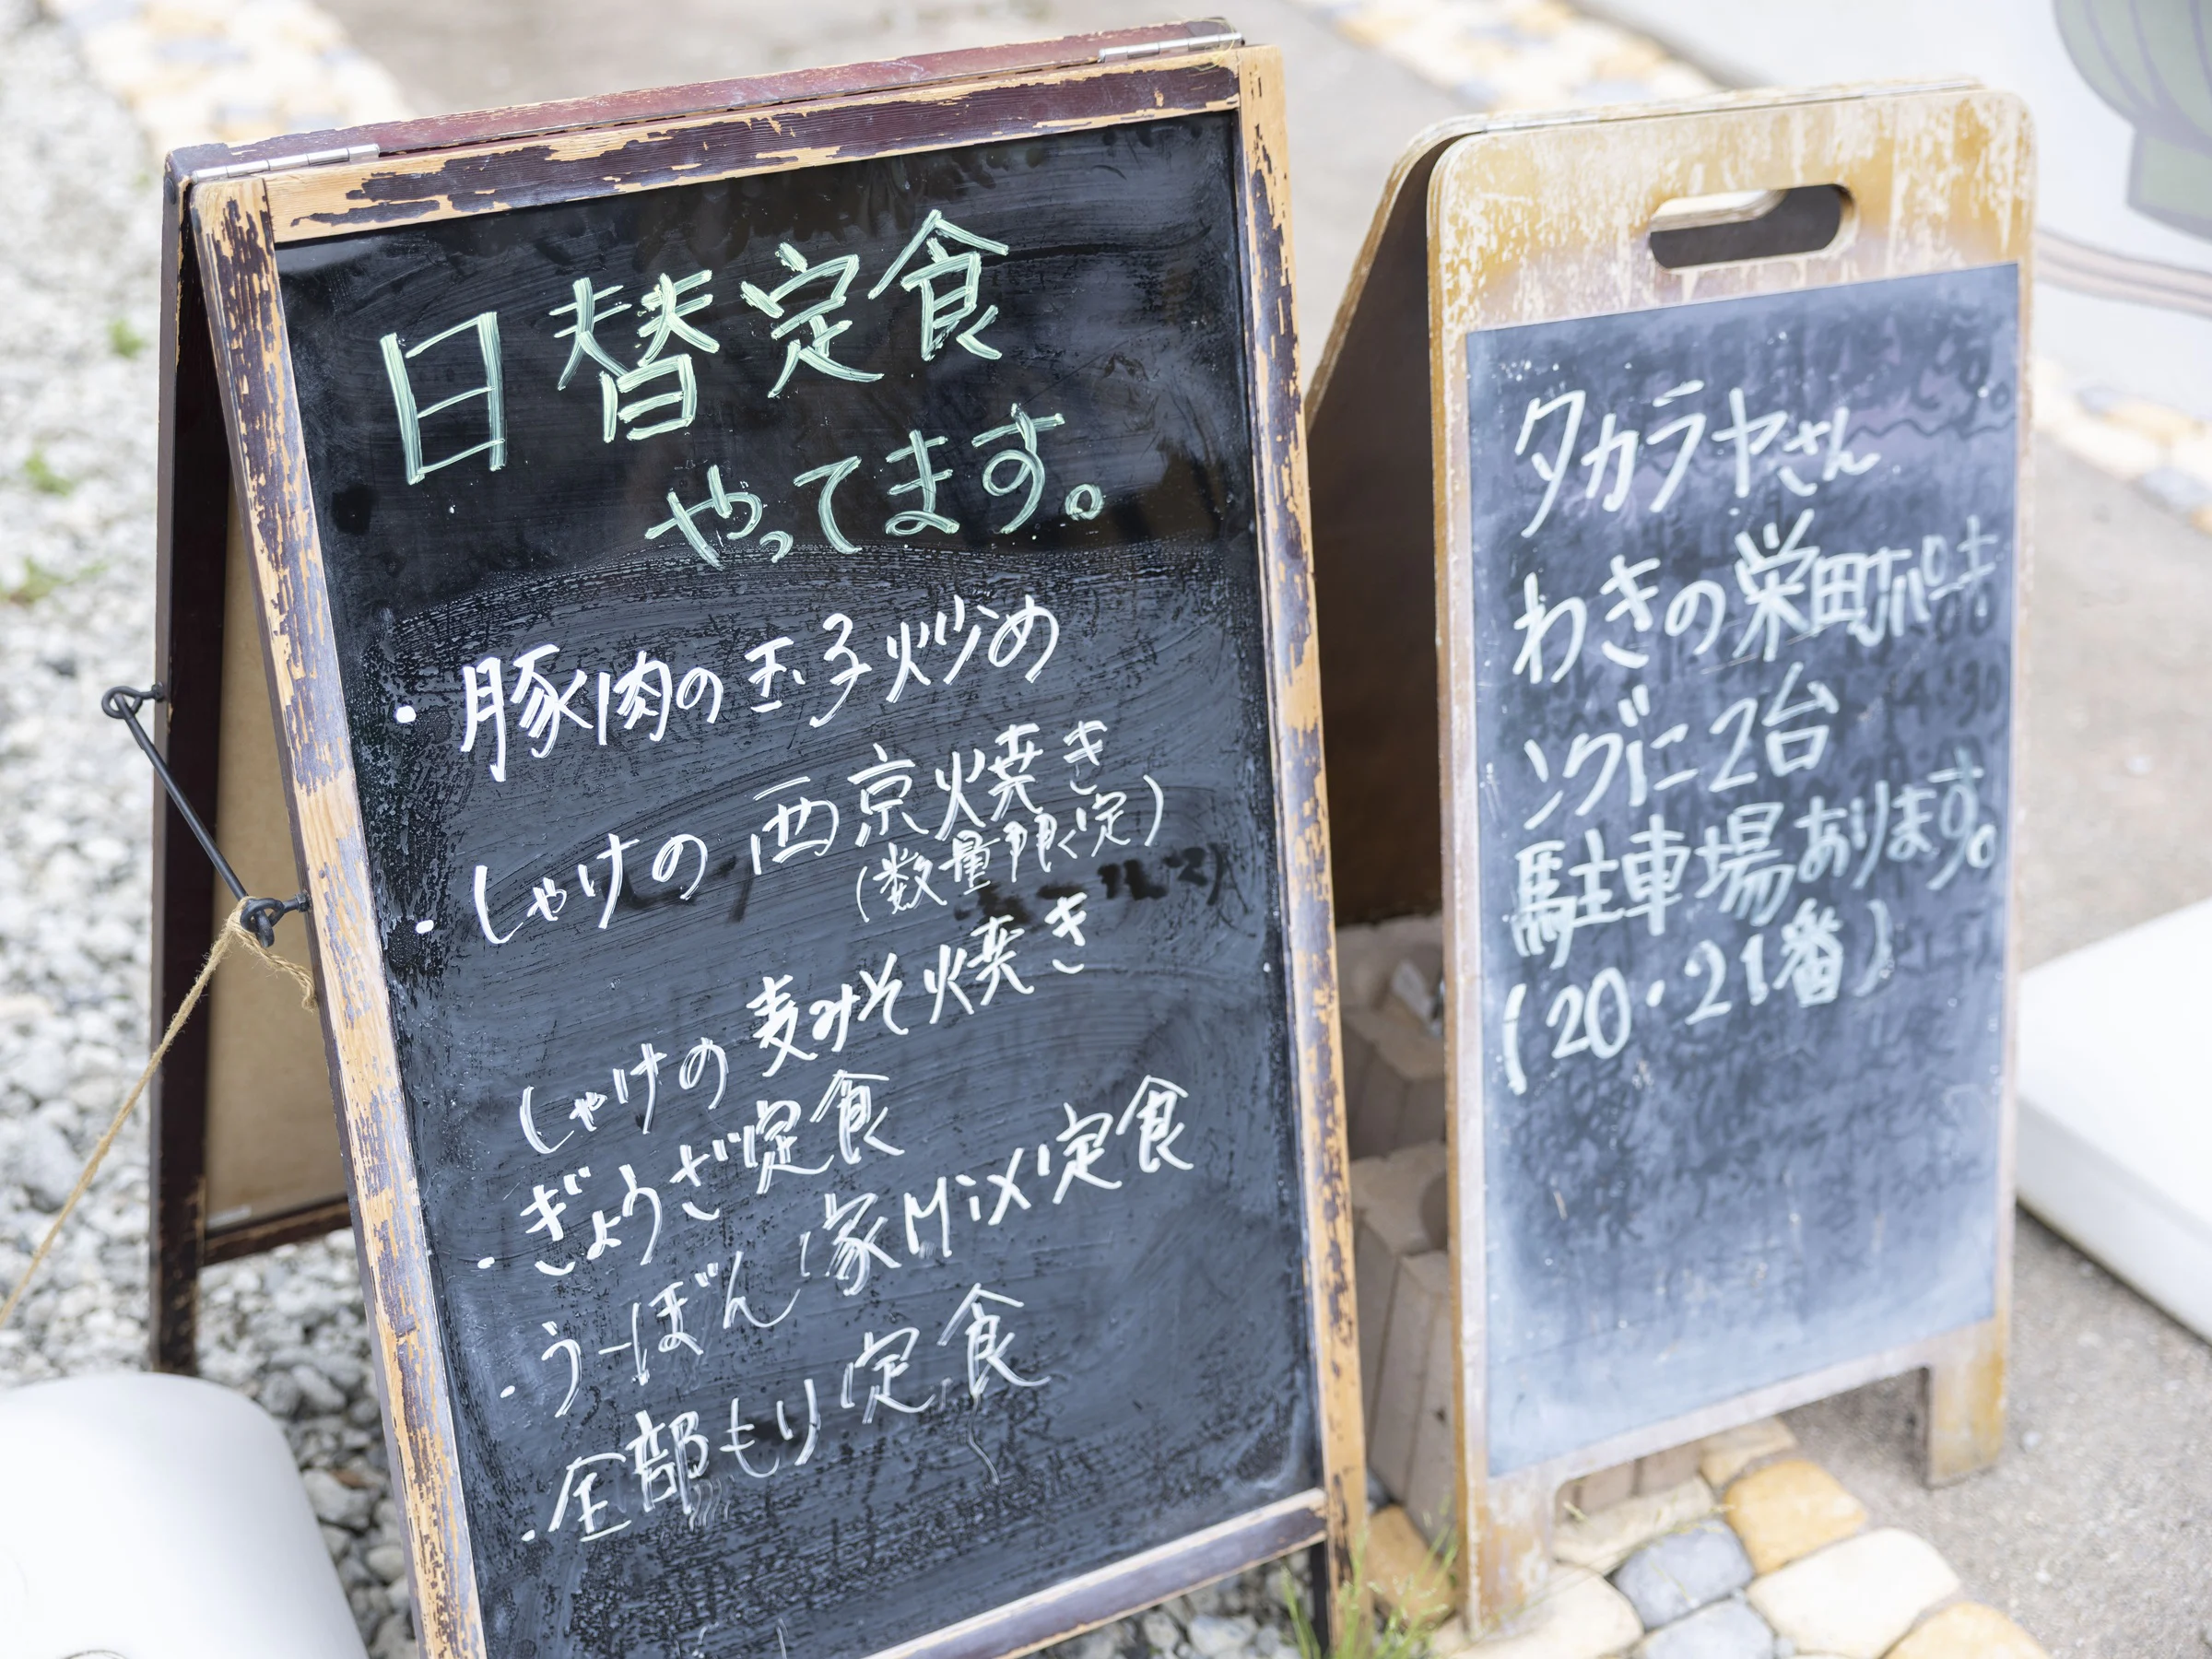 日替定食
やってます。
・豚肉の玉子炒め
・しゃけの西京焼き
(数量限定)
しゃけの麦みそ焼き
・ぎょうざ定食
・うーぼん家Mix定食
・全部もり定食
タカラヤさん
わきの栄町パーキ
ングに2台
駐車場あります。
(20・21番)